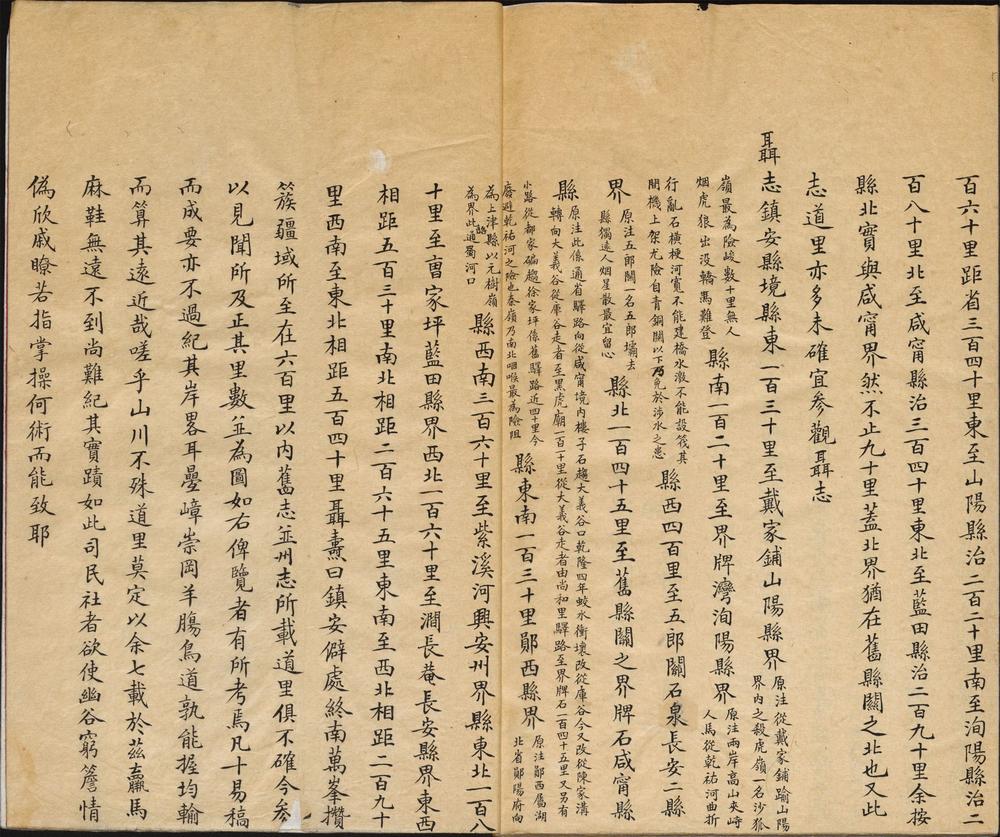 百六十里距省三百四十里東至山陽縣治二百二十里南至洵陽縣治二
百八十里北至咸甯縣治三百四十里東北至藍田縣治二百九十里余按
縣北實與咸甯界然不止九十里蓋北界猶在舊縣關之北也又此
志道里亦多未確宜參觀聶志
聶志鎮安縣境縣東一百三十里至戴家鋪山陽縣界原注從戴家鋪踰山陽
界内之殺虎嶺一名沙狐
嶺最為險峻數十里無人
烟虎狼出没轎馬難登縣南一百二十里至界牌灣洵陽縣界原注兩岸高山夾峙
人馬從乾祐河曲折
行亂石横梗河寬不能建橋水激不能設筏其
間機上架尤險自青銅關以下乃免於涉水之患縣西四百里至五郎關石泉長安二縣
界原注五郎關一名五郎壩去
縣獨遠人烟星散最宜留心縣北一百四十五里至舊縣關之界牌石咸甯縣
縣原注此係通省驛路向從咸甯境内樓子石趨大義谷口乾隆四年蛟水衝壞改從庫谷今又改從陳家溝
轉向大義谷從庫谷走者至黑虎廟一百二十里從大義谷走者由尚和里驛路至界牌石一百四十五里又另有
小路從都家碥趨徐家坪係舊驛路近四十里今
廢避乾祐河之險也秦嶺乃南北咽喉最為險阻縣東南一百三十里鄖西縣界原注鄖西屬湖
北省鄖陽府向
為上津縣以元樹嶺
為界此通蜀河口路縣西南三百六十里至紫溪河興安州界縣東北一百八
十里至曺家坪藍田縣界西北一百六十里至澗長菴長安縣界東西
相距五百三十里南北相距二百六十五里東南至西北相距二百九十
里西南至東北相距五百四十里聶燾曰鎮安僻處終南萬峯攢
簇疆域所至在六百里以内舊志並州志所載道里俱不確今參
以見聞所及正其里數並為圖如右俾覽者有所考焉凡十易稿
而成要亦不過紀其岸畧耳疊嶂崇岡羊腸鳥道孰能握均輸
而算其遠近哉嗟乎山川不殊道里莫定以余七載於茲羸馬
麻鞋無遠不到尚難紀其實蹟如此司民社者欲使幽谷窮簷情
偽欣戚瞭若指掌操何術而能致耶